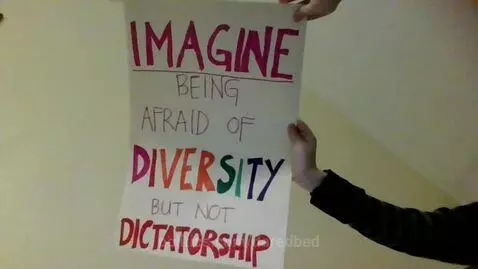 IMAGINE
BEING
AFRAID OF
DIVERSITY
BUT NOT
DICTATORSHIP